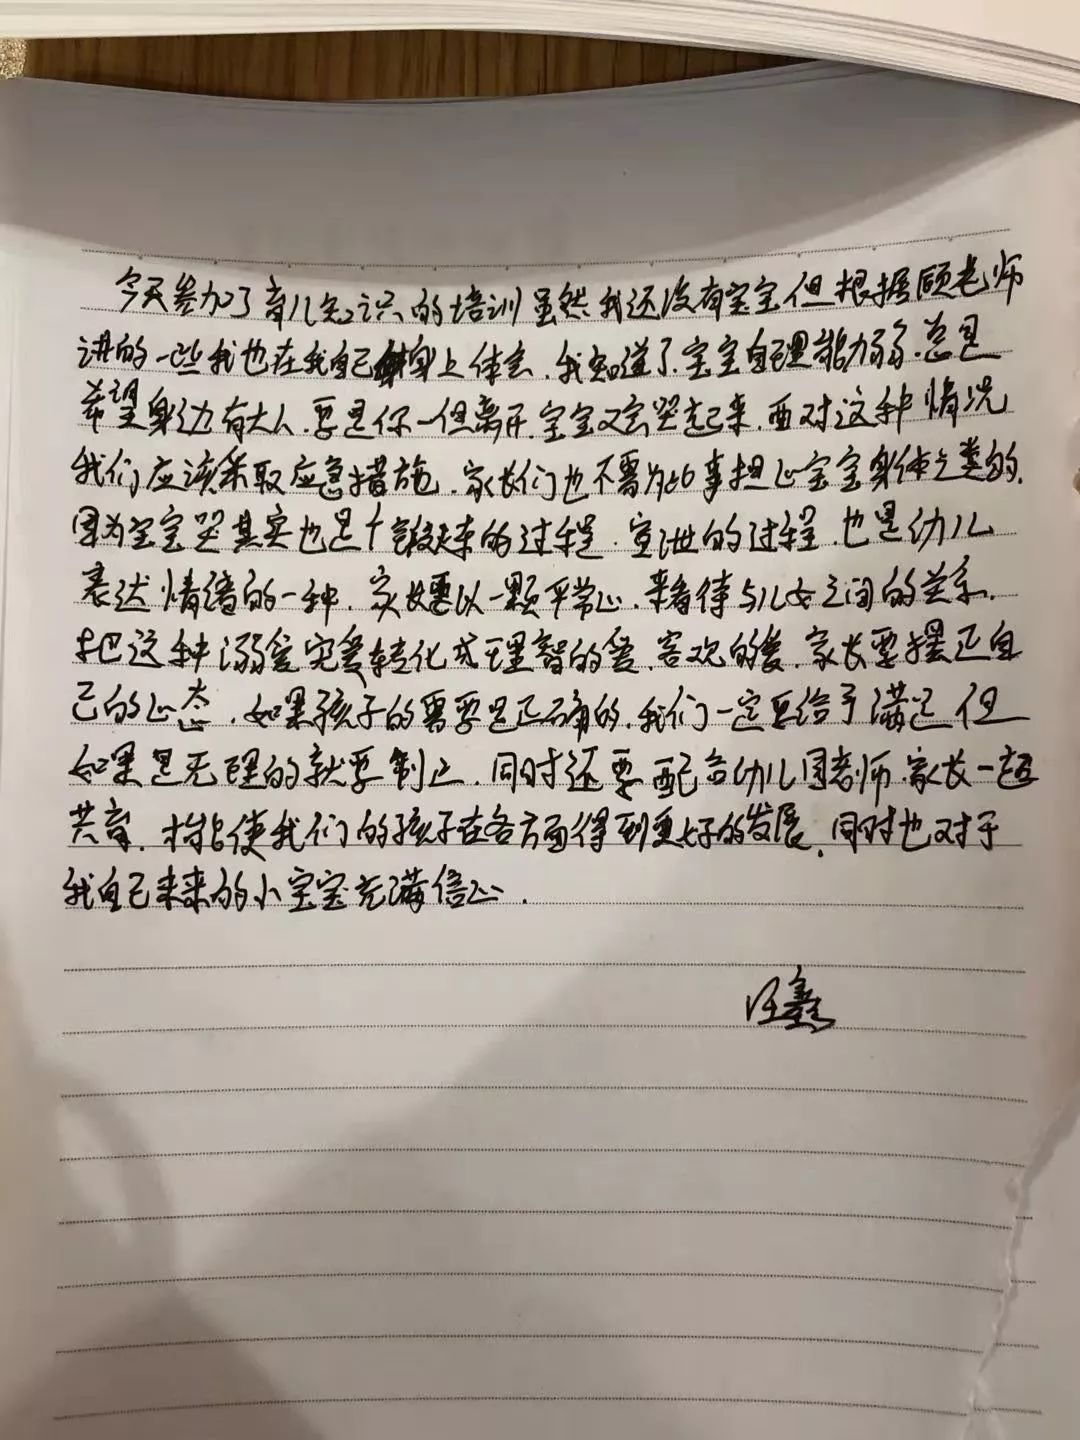 今天参加了育儿知识的培训虽然我还没有宝宝但根据顾老师
讲的一些我也在我自己身上体会.我知道了.宝宝自理能力弱.总是
希望身边有大人.要是你一但离开.宝宝又会哭起来.面对这种情况
我们应该采取应急措施.家长们也不需为此事担心宝宝身体之类的.
因为宝宝哭其实也是个锻练的过程.宣泄的过程.也是幼儿
表达情绪的一种.家长要以一颗平常心.来看待与儿女之间的关系.
把这种溺爱完变转化成理智的爱.客观的爱.家长要摆正自
己的心态.如果孩子的需要是正确的.我们一定要给予满足但
如果是无理的就要制止.同时还要配合幼儿园老师.家长一起
共育.使我们的孩子在各方面得到更好的发展.同时也对于
我自己未来的小宝宝充满信心.
汪鑫